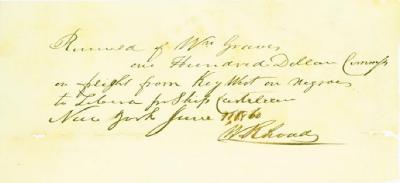 Received of Wm Graves
one Hundred Dollars Commiss
on freight from Key West on Negroes
to Liberia pr Ship Castilian
New York June 1860
W. R. Rhoads